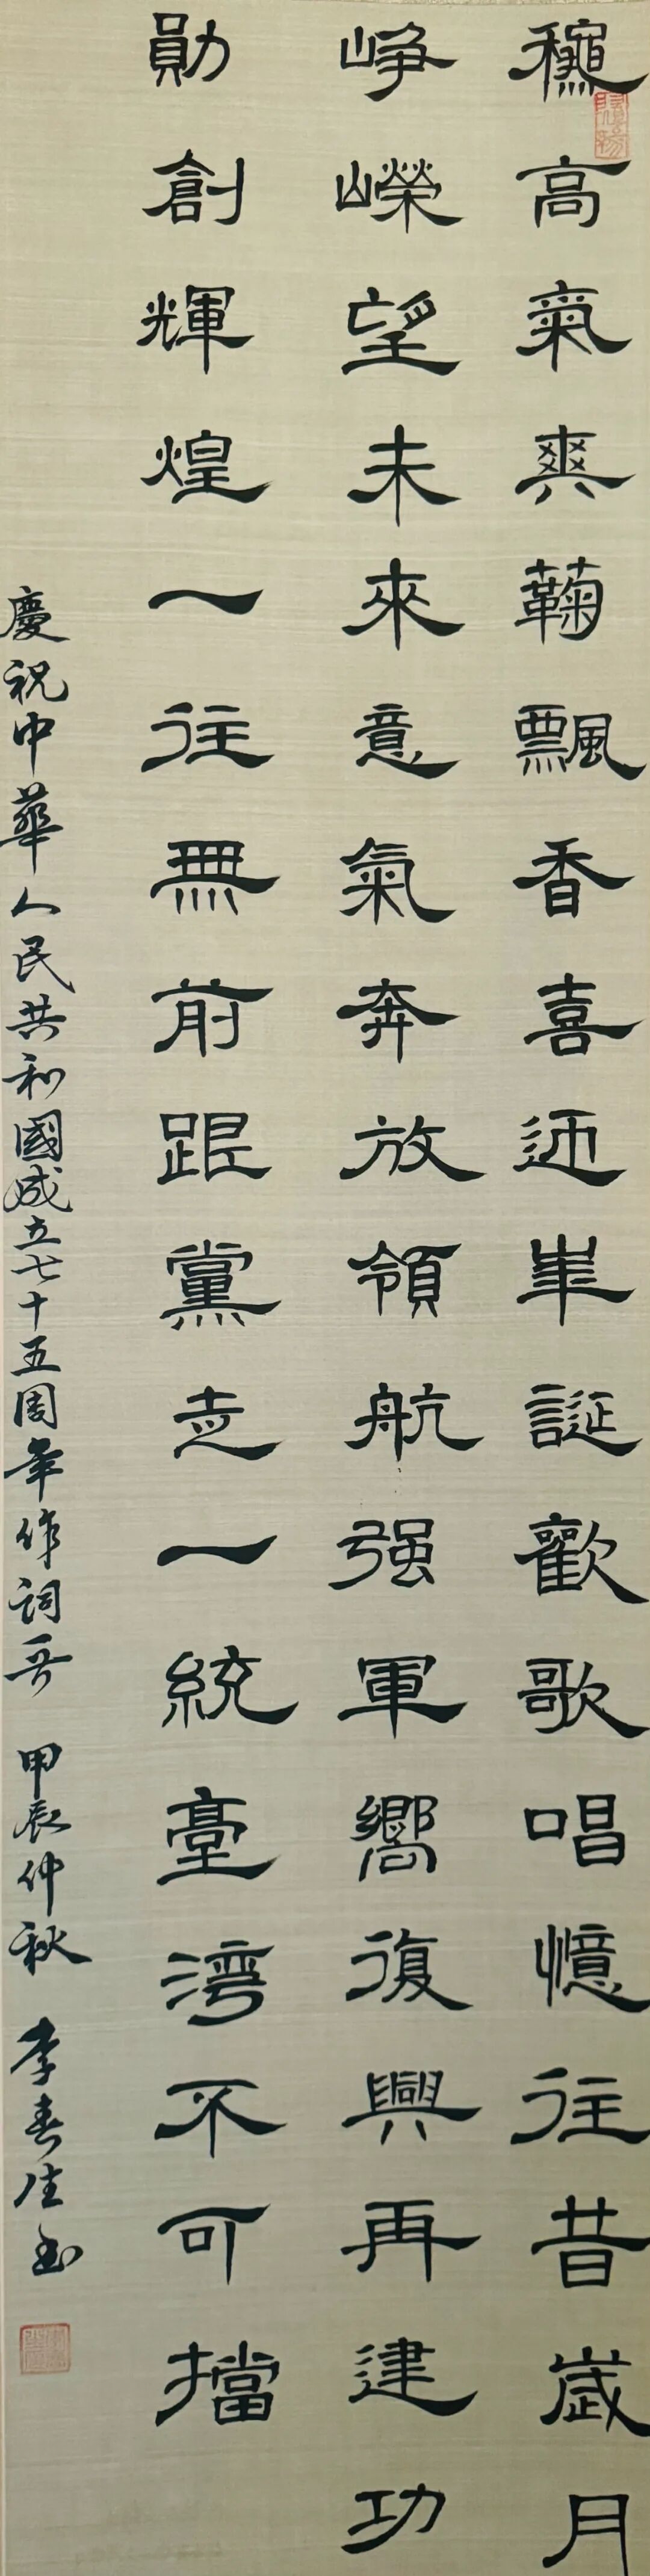 穐高氣爽鞠飄香喜迊華誕歡歌唱憶往昔歲月
崢嶸望未來意氣奔放領航强軍嚮復興再建功
勛創輝煌一往無前跟黨走一統臺灣不可擋
慶祝中華人民共和國成立七十五周年作詞一首 甲辰仲秋 李春生書